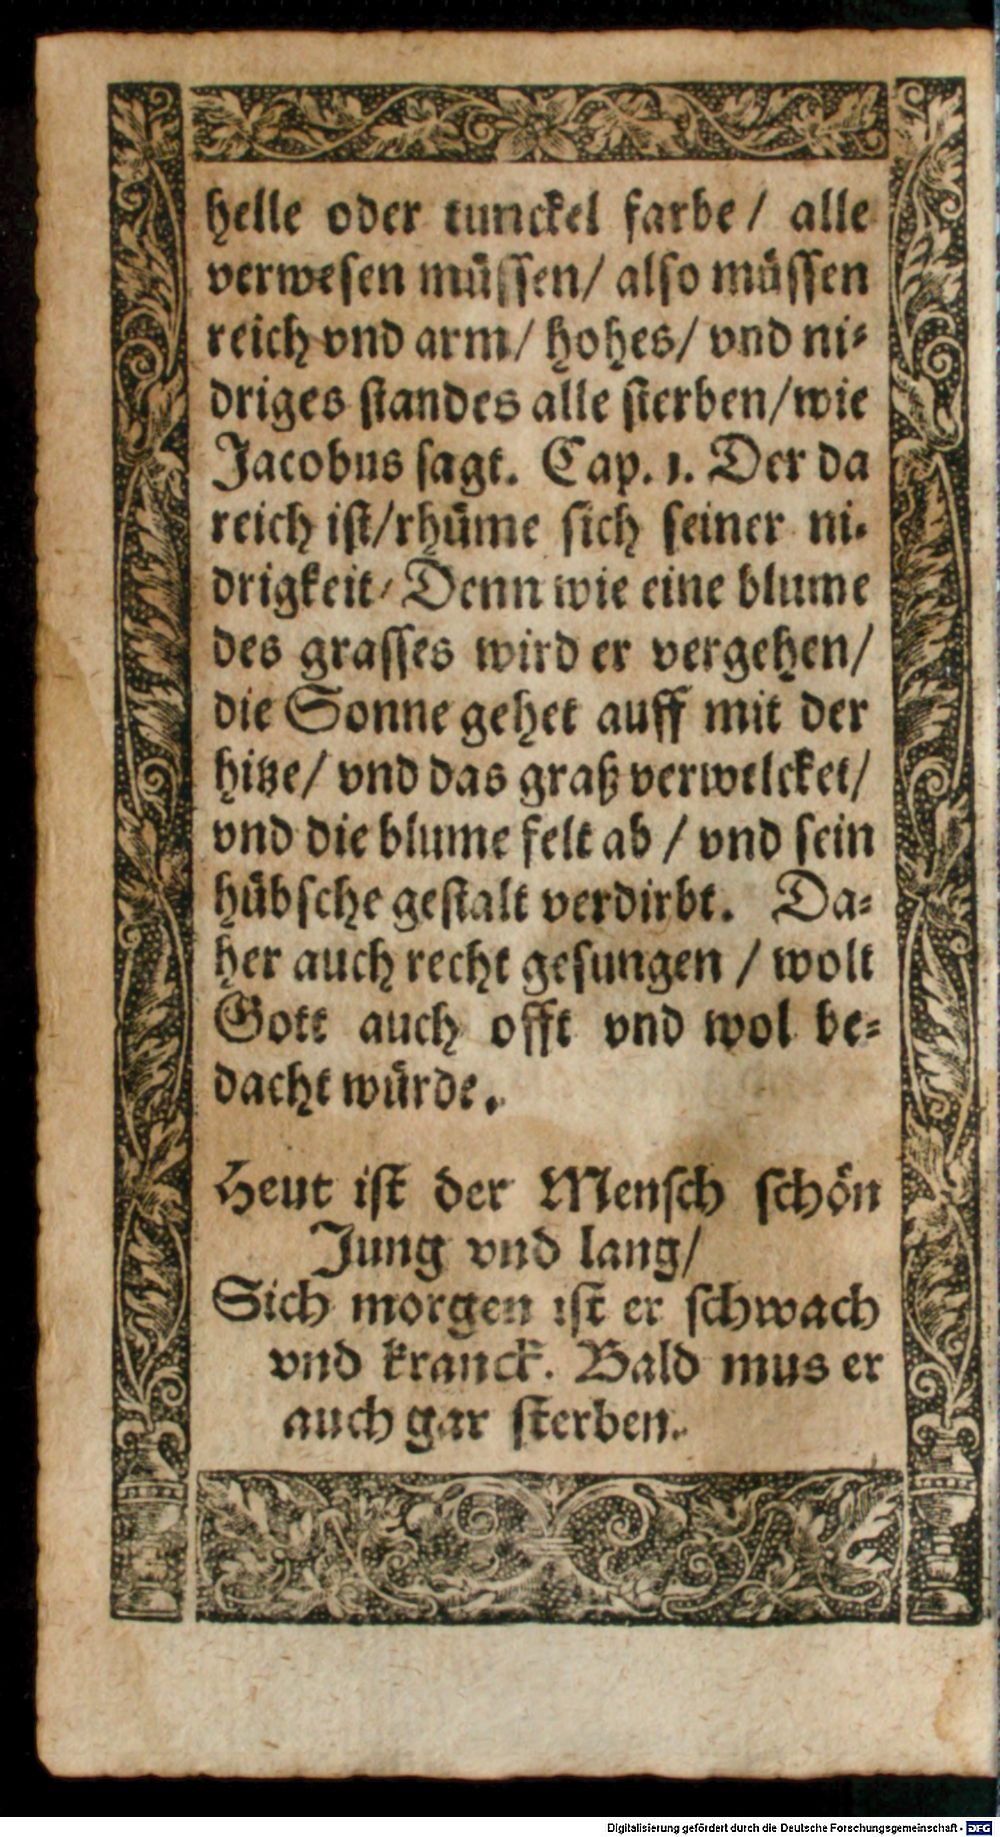 helle oder tunckel farbe / alle
verwesen müssen / also müssen
reich vnd arm / hohes / vnd ni-
driges standes alle sterben / wie
Jacobus sagt. Cap. 1. Der da
reich ist / rhüme sich seiner ni-
drigkeit / Denn wie eine blume
des grasses wird er vergehen /
die Sonne gehet auff mit der
hitze / vnd das graß verwelcket /
vnd die blume felt ab / vnd sein
hübsche gestalt verdirbt. Da-
her auch recht gesungen / wolt
Gott auch offt vnd wol be-
dacht würde.
Heut ist der Mensch schön
Jung vnd lang /
Sich morgen ist er schwach
vnd kranck. Bald mus er
auch gar sterben.
Digitalisierung gefördert durch die Deutsche Forschungsgemeinschaft - DFG